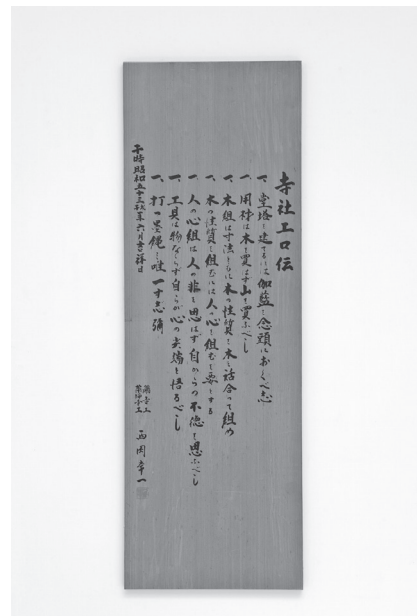 寺社工口伝
一、堂塔を建てるには伽藍を念頭におくべし
一、用材は木を買はず山を買ふべし
一、木組は寸法とともに木の性質を木と話合って組め
一、木の性質を組むには人の心を組むを要とする
一、人の心組は人の非を思はず自からの不徳を思ふべし
一、工具は物ならず自らが心の尖端と悟るべし
一、打つ墨縄に唯一すじの
于時昭和五十三戊午六月吉祥日
薬師寺工
西岡常一